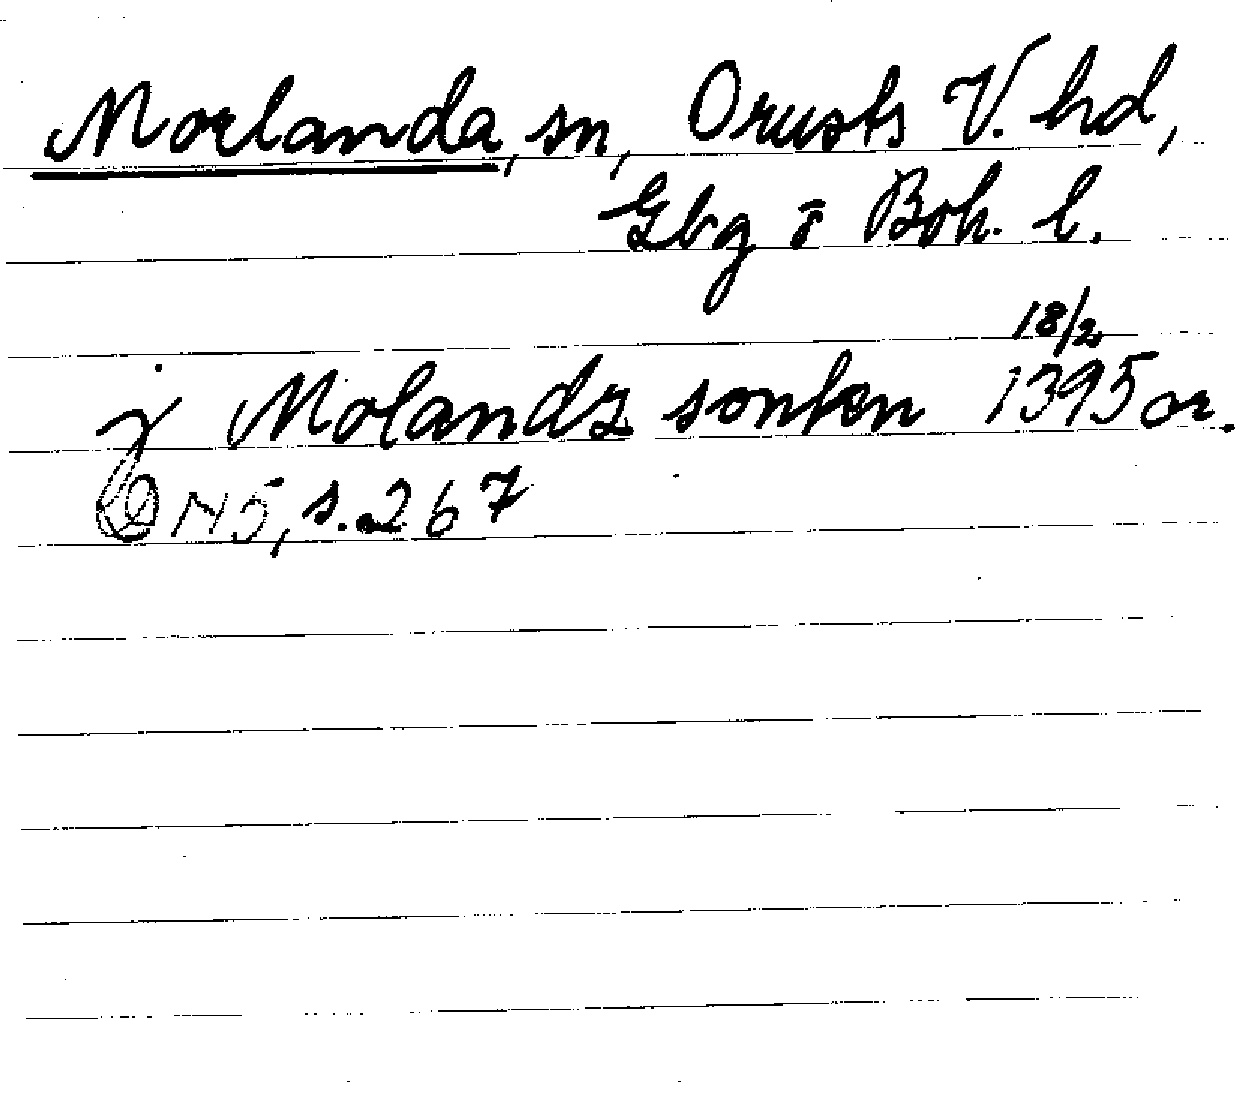 Morlanda, sn, Orusts V. hd,
Gbg o Boh. l.
18/2
j Molandz sonken 1395 or.
DN 5, s. 267